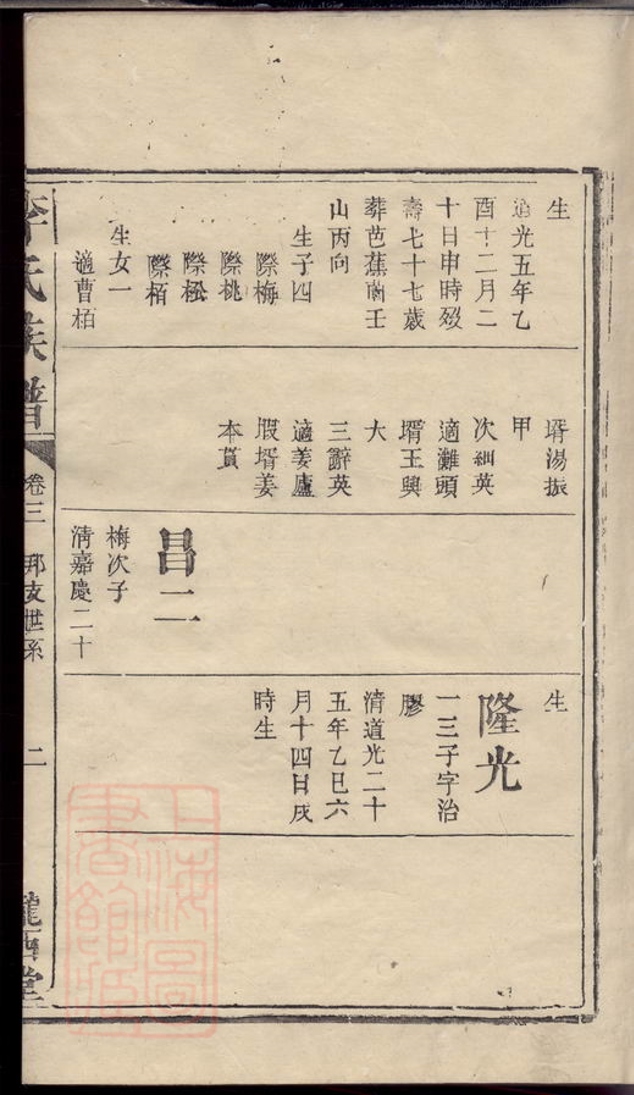 生
道光五年乙
酉十二月二
十日申時歿
壽七十七歲
葬芭蕉崗壬
山丙向
生子四
際梅
際桃
際松
際栢
生女一
適曹栢
壻湯振
甲
次紉英
適灘頭
壻王興
大
三辭英
適姜廬
塅壻姜
本貰
昌二
梅次子
清嘉慶二十
生
隆光
一三子字治
膠
清道光二十
五年乙巳六
月十四日戌
時生
李氏族譜
卷三
邦支世系
二
隴西堂
上海圖
書館藏